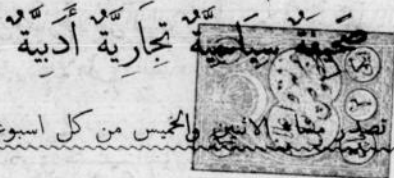 صَحِيفَةٌ سِيَاسِيَّةٌ تِجَارِيَّةٌ أَدَبِيَّةٌ
تصدر مساء الاثنين والخميس من كل اسبوع